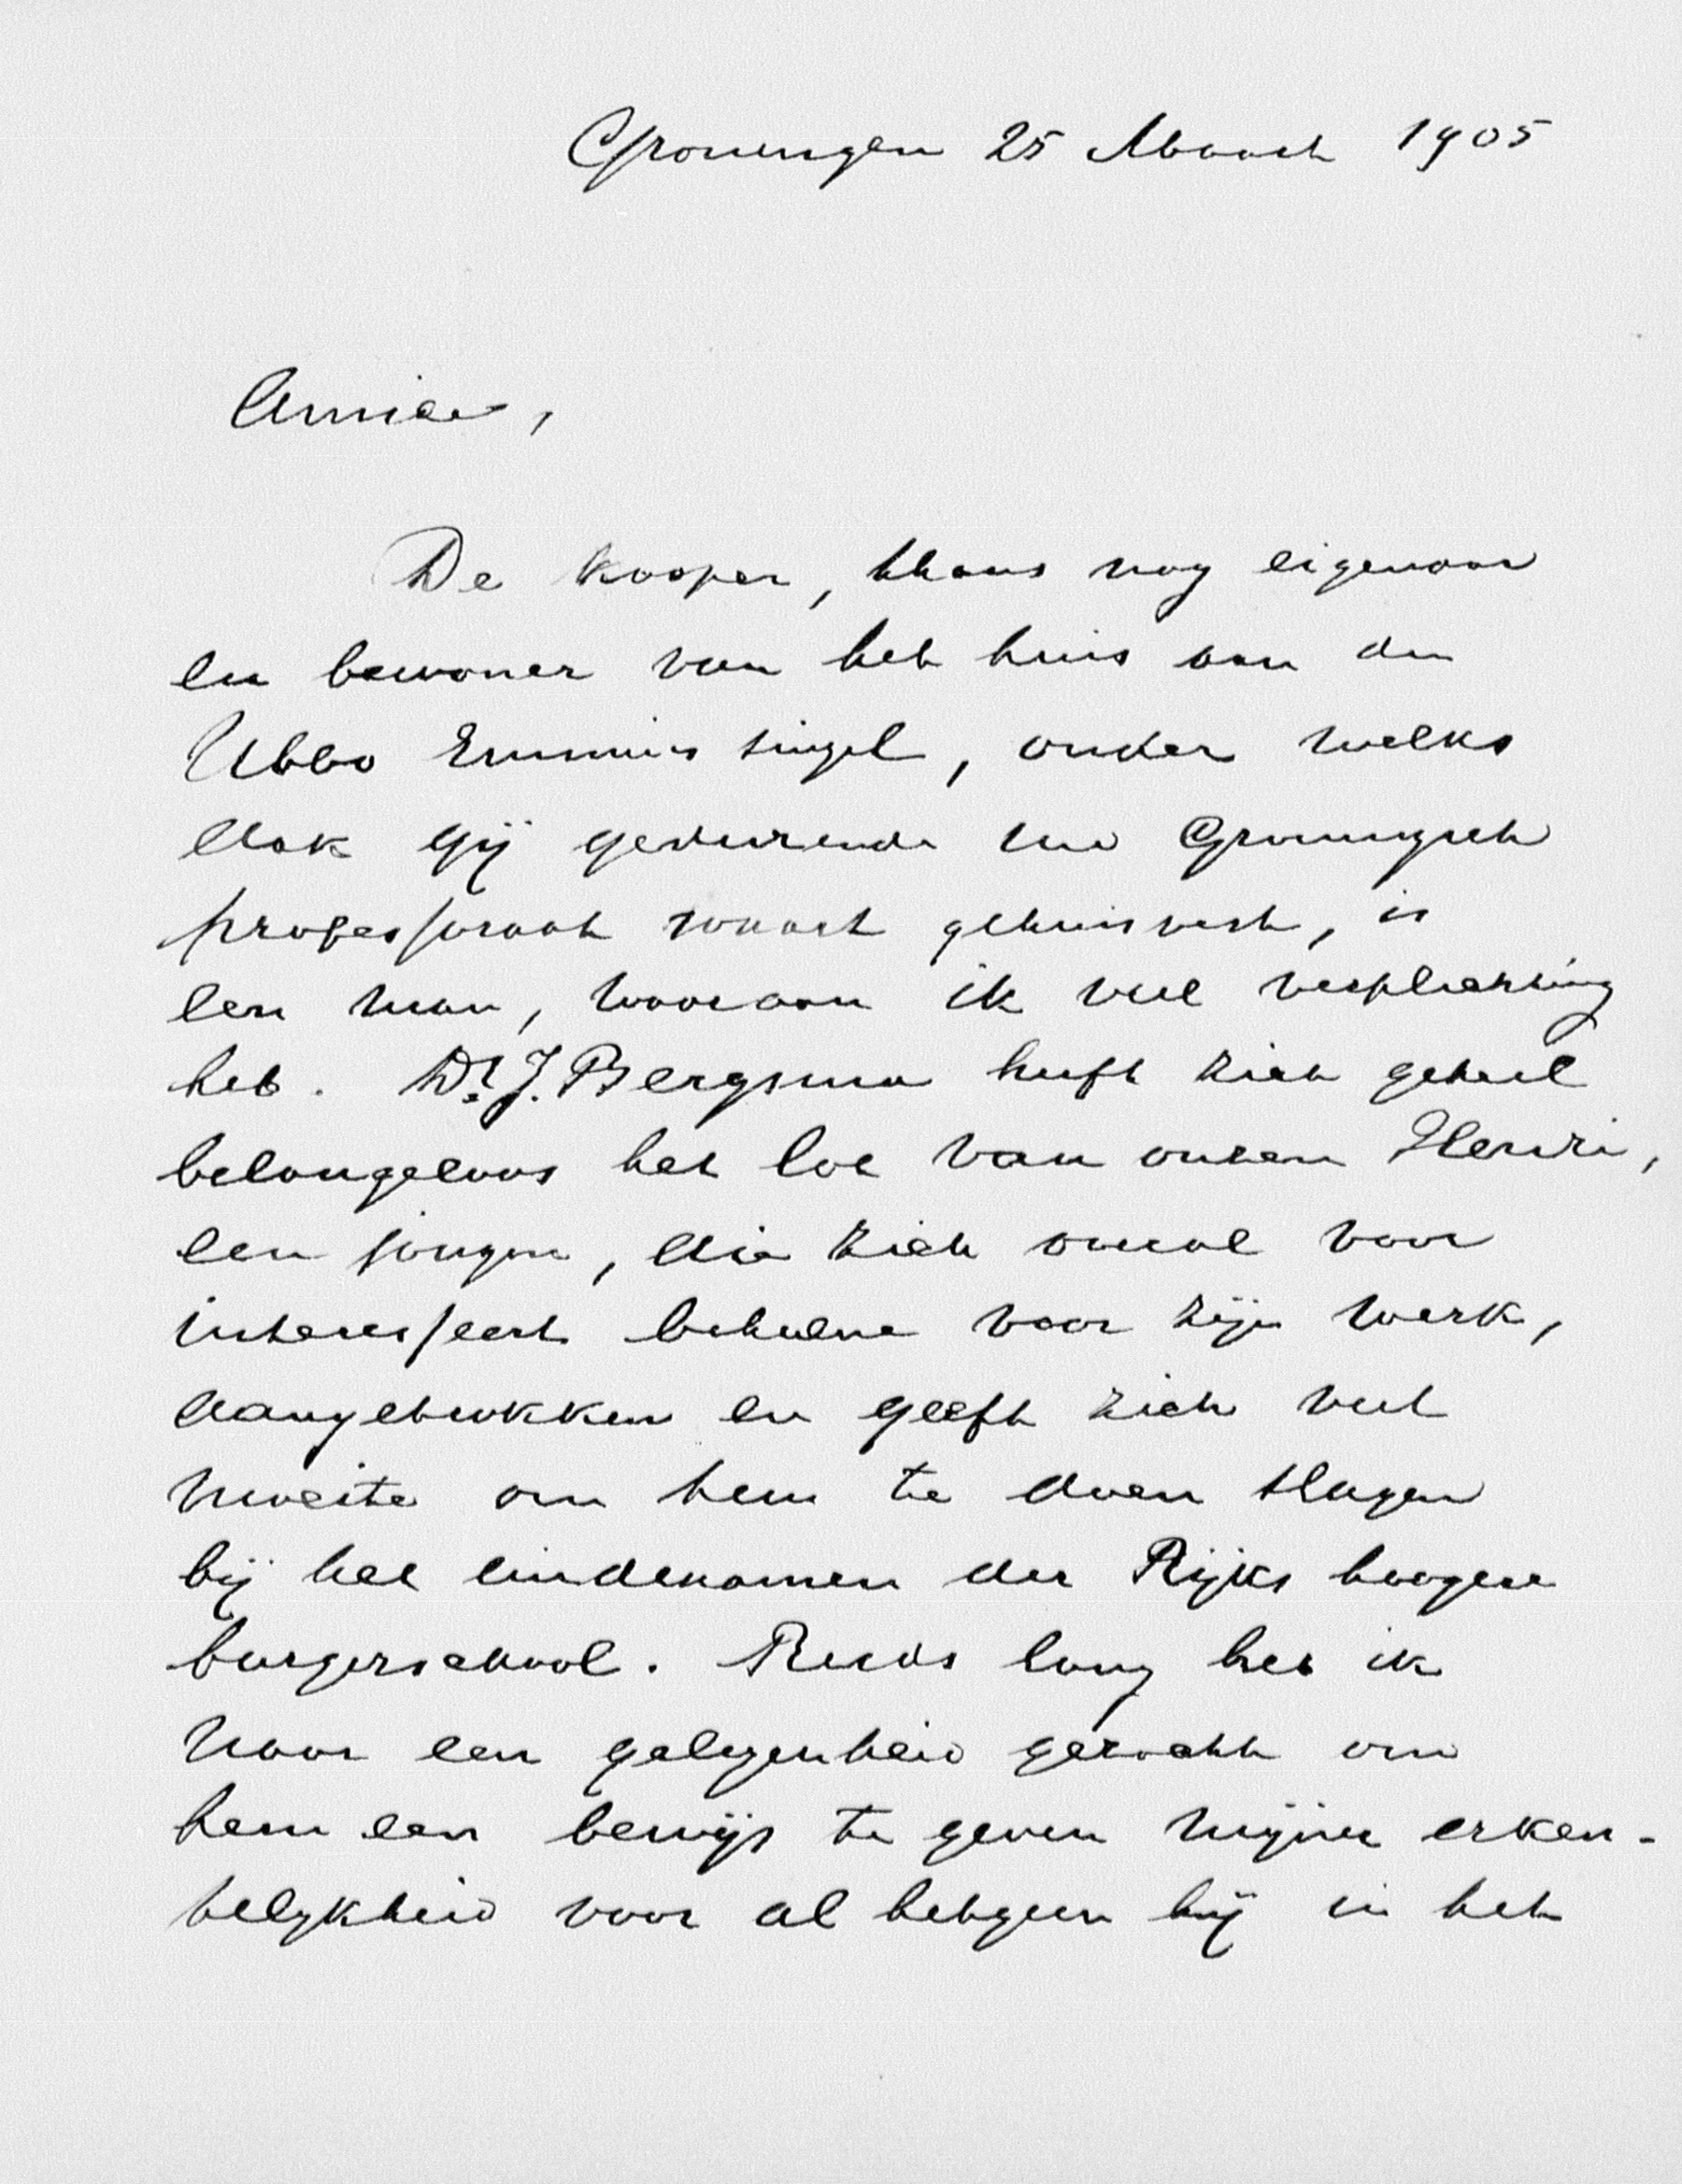 Groningen 25 Maart 1905
Amice,
De kooper, thans nog eigenaar
en bewoner van het huis aan den
Ubbo Emmius singel, onder welks
dak gij gedurende uw Groningsch
professoraat waart gehuisvest, is
een man, waaraan ik veel verplichting
heb. Dr. J. Bergsma heeft zich geheel
belangeloos het lot van onzen Henri,
een jongen, die zich overal voor
interesseert behalve voor zijn werk,
aangetrokken en geeft zich veel
moeite om hem te doen slagen
bij het eindexamen der Rijks hoogere
burgerschool. Reeds lang heb ik
naar een gelegenheid gezocht om
hem een bewijs te geven mijner erken-
telykheid voor al hetgeen hij in het